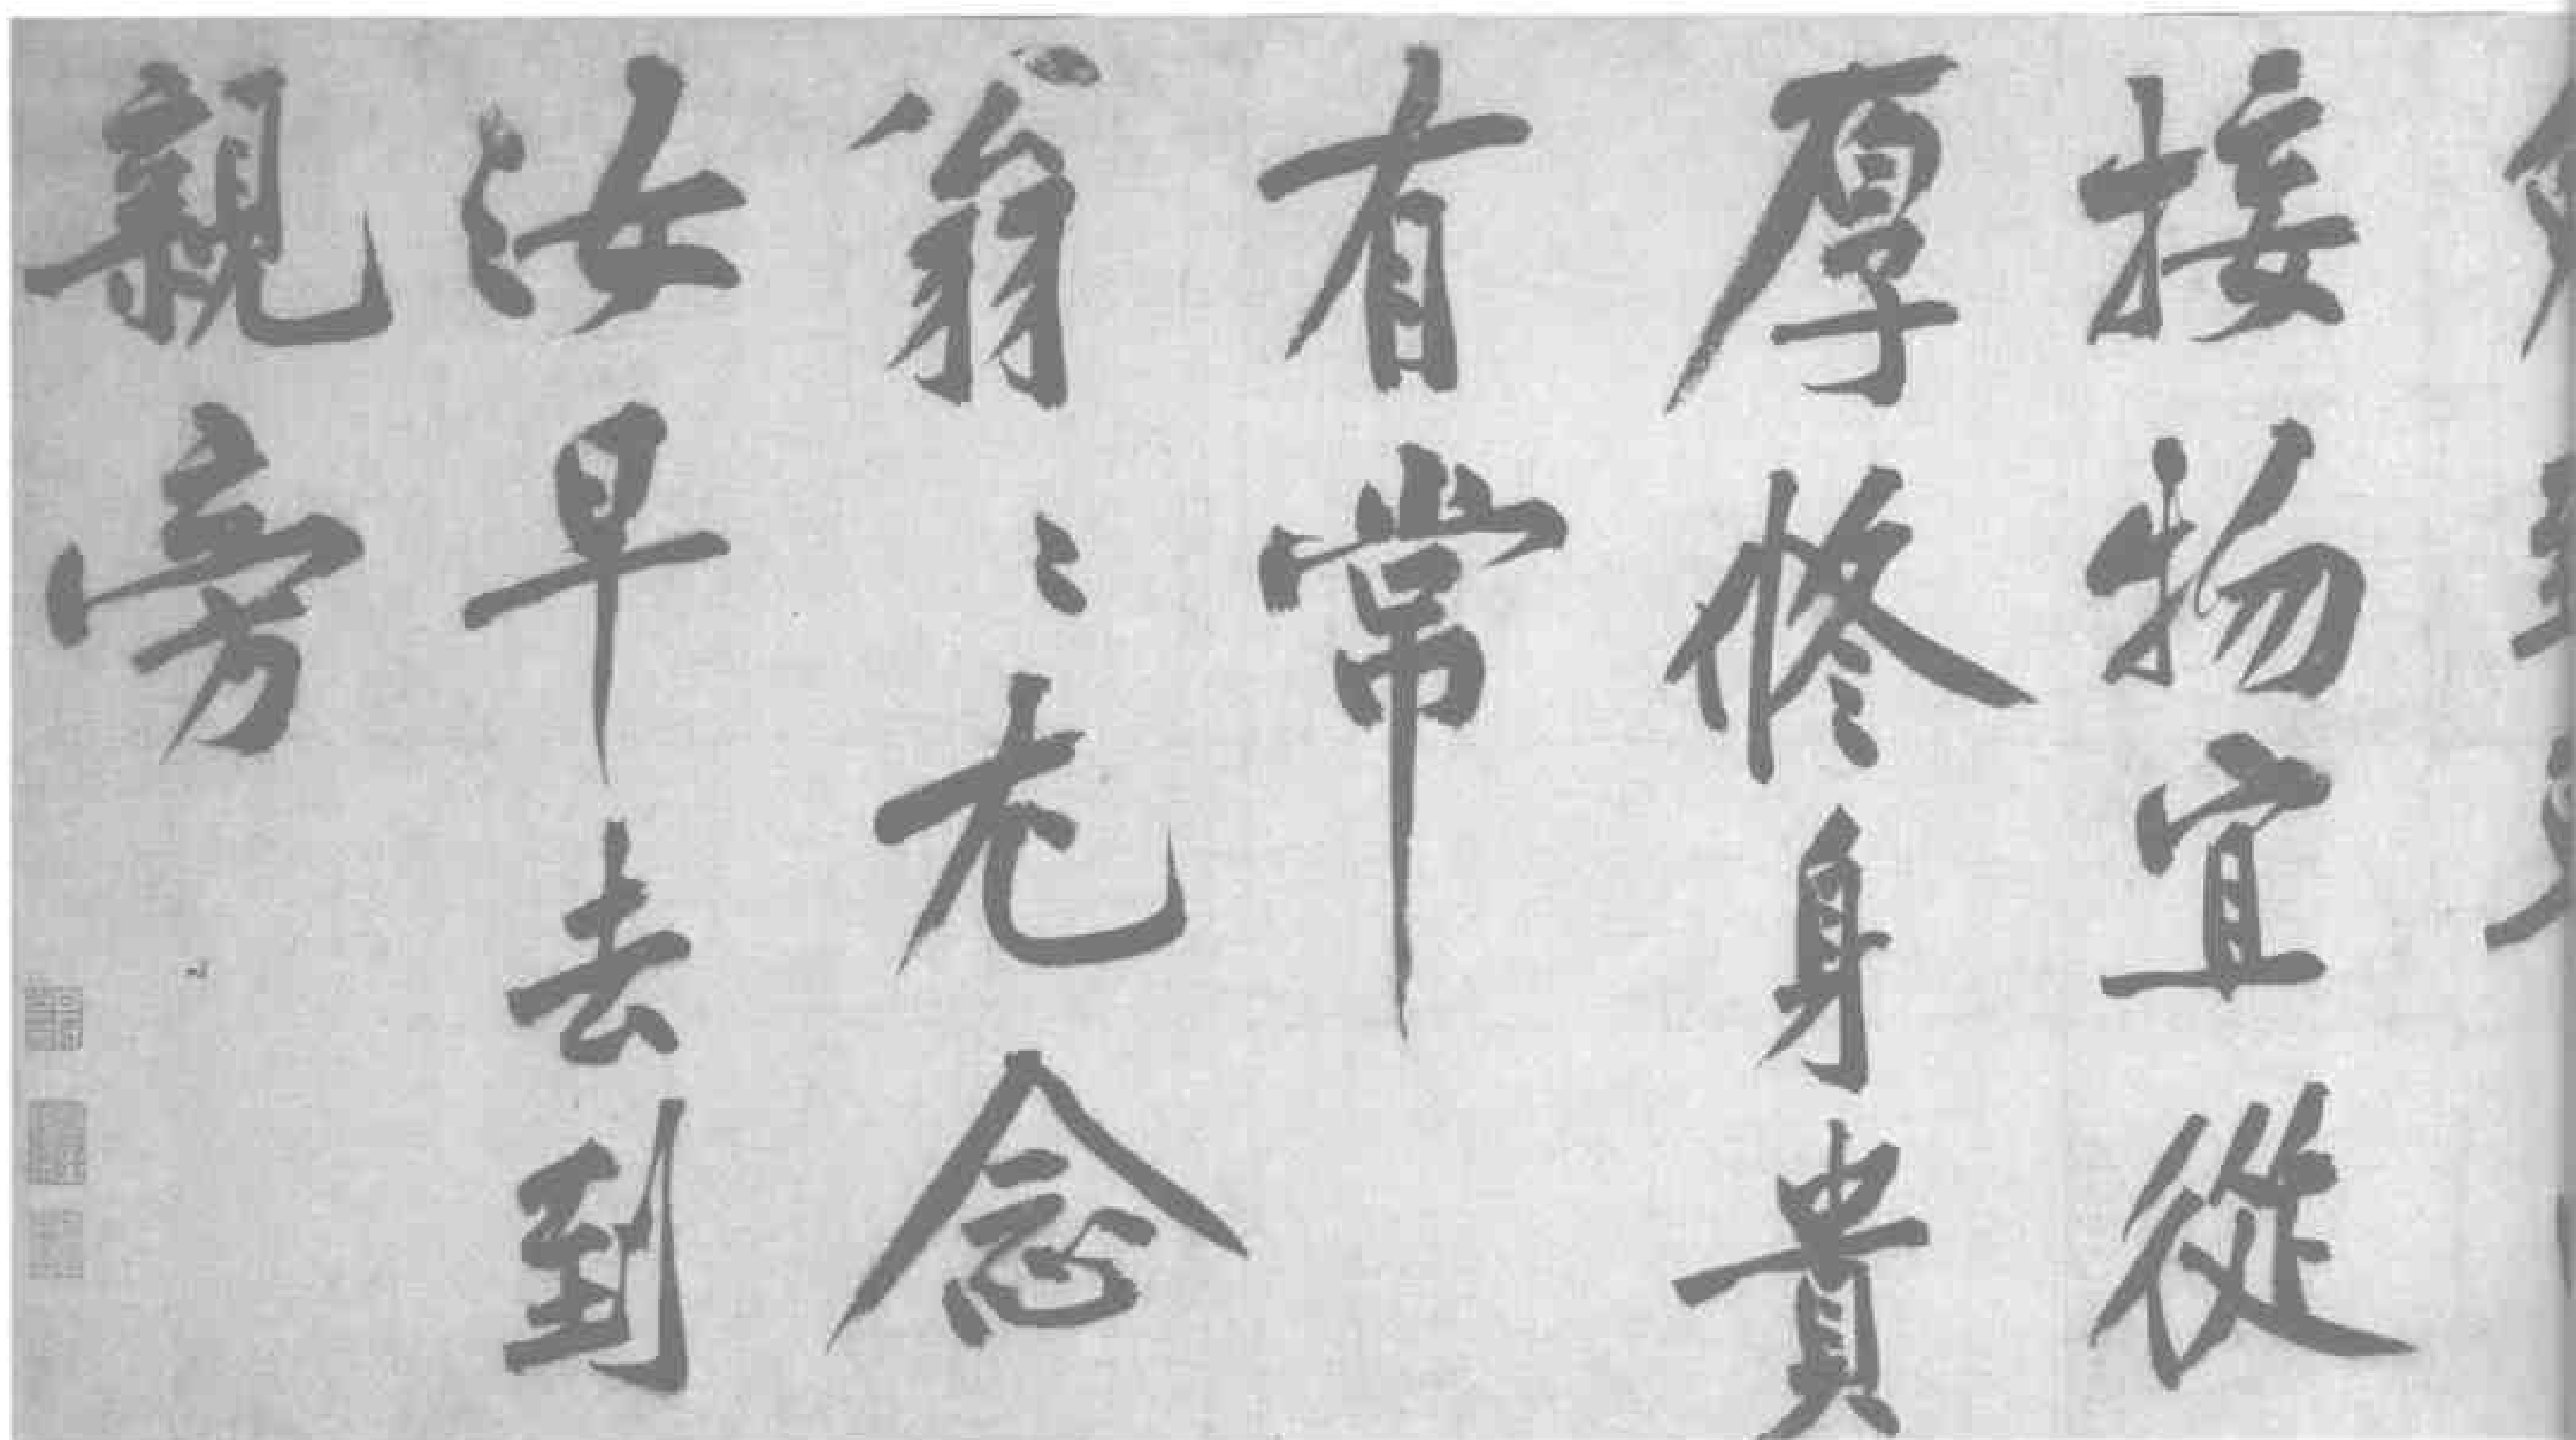 接物宜從
厚修身貴
有常
翁〻尤念
汝早去到
親旁